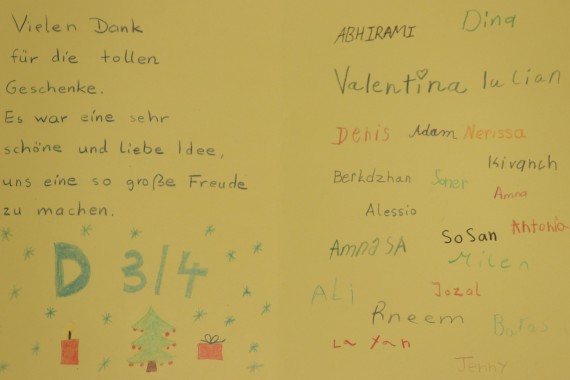 Vielen Dank
für die tollen
Geschenke.
Es war eine sehr
schöne und liebe Idee,
uns eine so große Freude
zu machen.
D 3/4
ABHIRAMI Dina
Valentina Iulian
Denis Adam Nerissa
Berkdzhan Soner Kivanch
Amna
Alessio
AmnaSA SoSan Antonio
Milen
ALI Jozol
Rneem
La Yan
Jenny